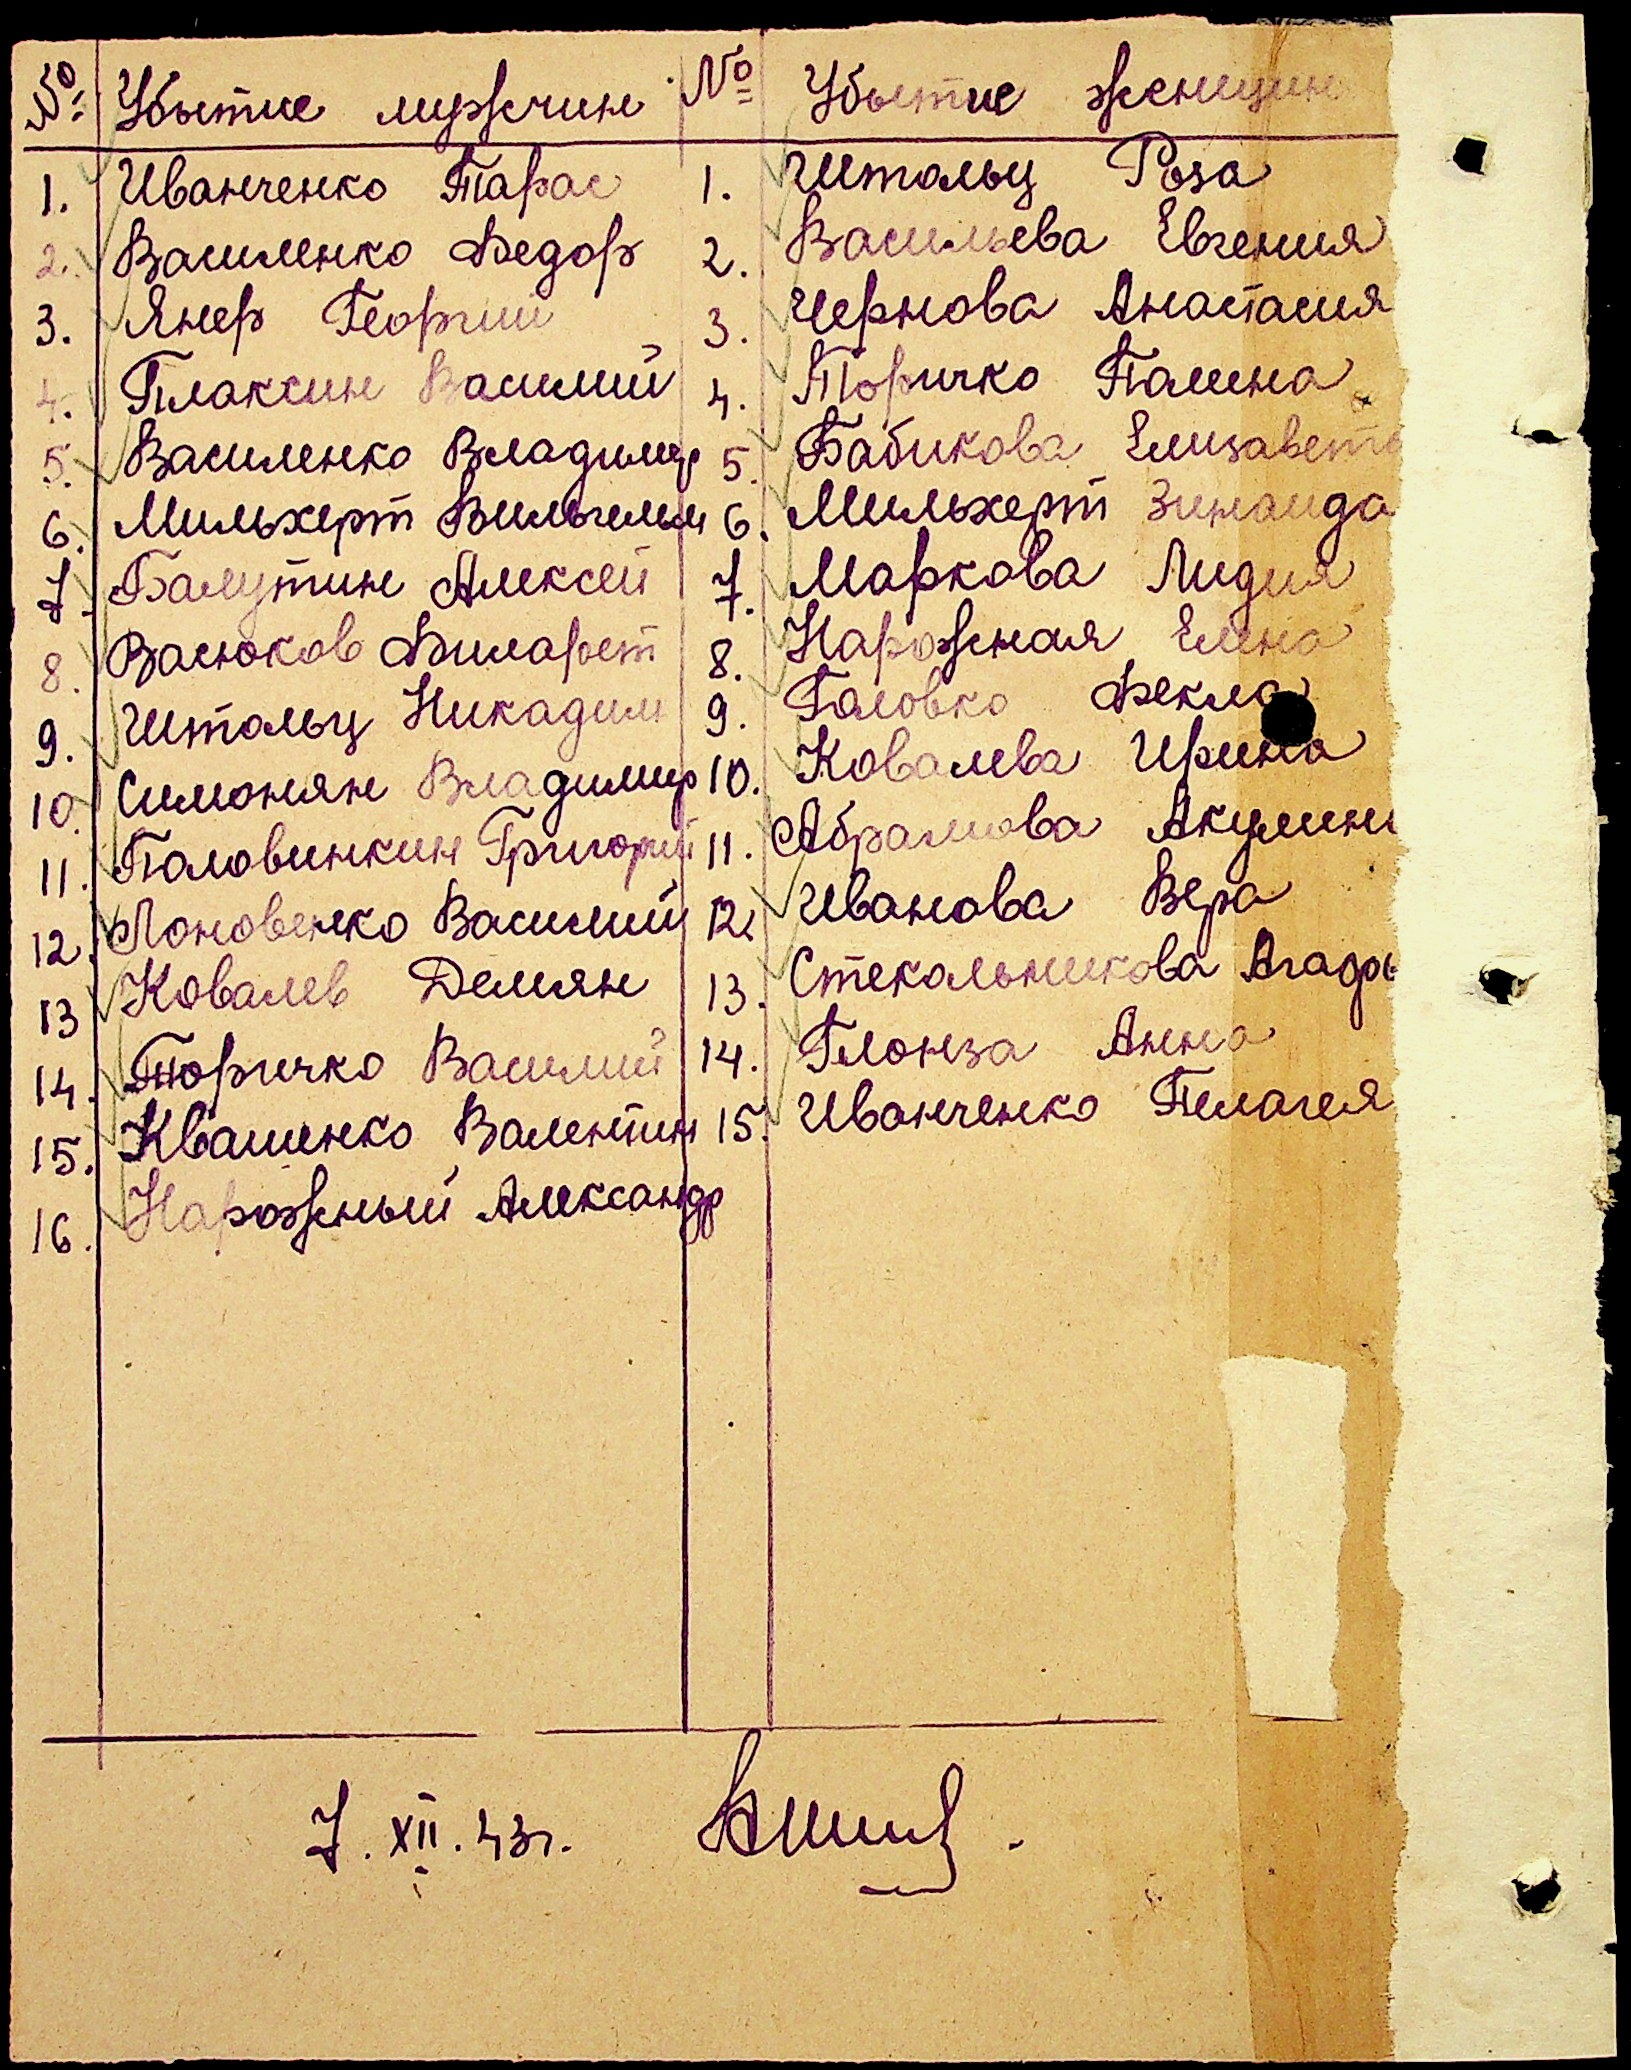 № Убытие мужчин № Убытие женщин
1. Иванченко Тарас 1. Штольц Роза
2. Василенко Федор 2. Васильева Евгения
3. Янер Георгий 3. Чернова Анастасия
4. Плаксин Василий 4. Торичко Полина
5. Василенко Владимир 5. Бабикова Елизавета
6. Мильхерт Вильгельм 6. Мильхерт Зинаида
7. Балутин Алексей 7. Маркова Лидия
8. Васюков Филарет 8. Нарожная Елена
9. Штольц Никадим 9. Головко Фекла
10. Симонян Владимир 10. Ковалева Ирина
11. Половинкин Григорий 11. Абрамова Акулин
12. Лоновенко Василий 12. Иванова Вера
13 Ковалев Демян 13. Стекольникова Агафь
14. Торичко Василий 14. Глонза Анна
15. Квашенко Валентин 15. Иванченко Пелагея
16. Нарожный Александр
7. XII. 43г.